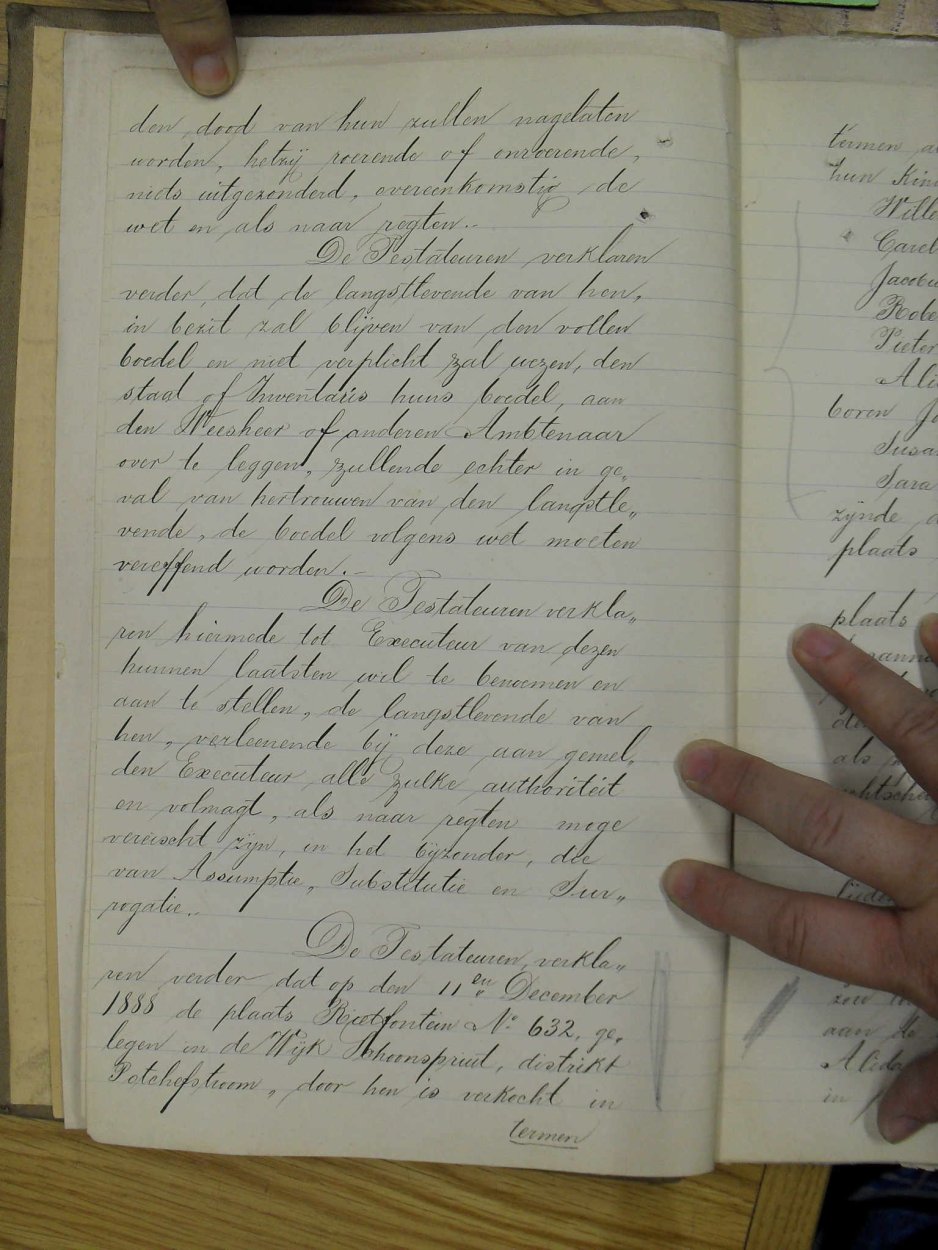 den dood van hun zullen nagelaten
worden, hetzij roerende of onroerende,
niets uitgezonderd, overeenkomstig de
wet en als naar regten.-
De Testateuren verklaren
verder, dat de langstlevende van hen,
in bezit zal blijven van den vollen
boedel en niet verplicht zal wezen, den
staat of Inventaris huns boedel, aan
den Weesheer of anderen Ambtenaar
over te leggen, zullende echter in ge„
val van hertrouwen van den langstle„
vende, de boedel volgens wet moeten
vereffend worden.-
De Testateuren verkla„
ren hiermede tot Executeur van dezen
hunnen laatsten wil te benoemen en
aan te stellen, de langstlevende van
hen, verleenende bij deze aan gemel„
den Executeur alle zulke authoriteit
en volmagt, als naar regten moge
vereischt zijn, in het bijzonder, die
van Assumptie, Substitutie en Sur„
rogatie.-
De Testateuren, verkla„
ren verder dat op den 11en December
1888 de plaats Rietfontein No. 632, ge„
legen in de Wijk Schoonspruit, distrikt
Potchefstroom, door hen is verkocht in
termen
termen
hun Kin
Wille
Carel
Jacobu
Robe
Pieter
Alid
boren J
Susa
Sara
zijnde
plaats
plaats
als
aan de
Alida
in